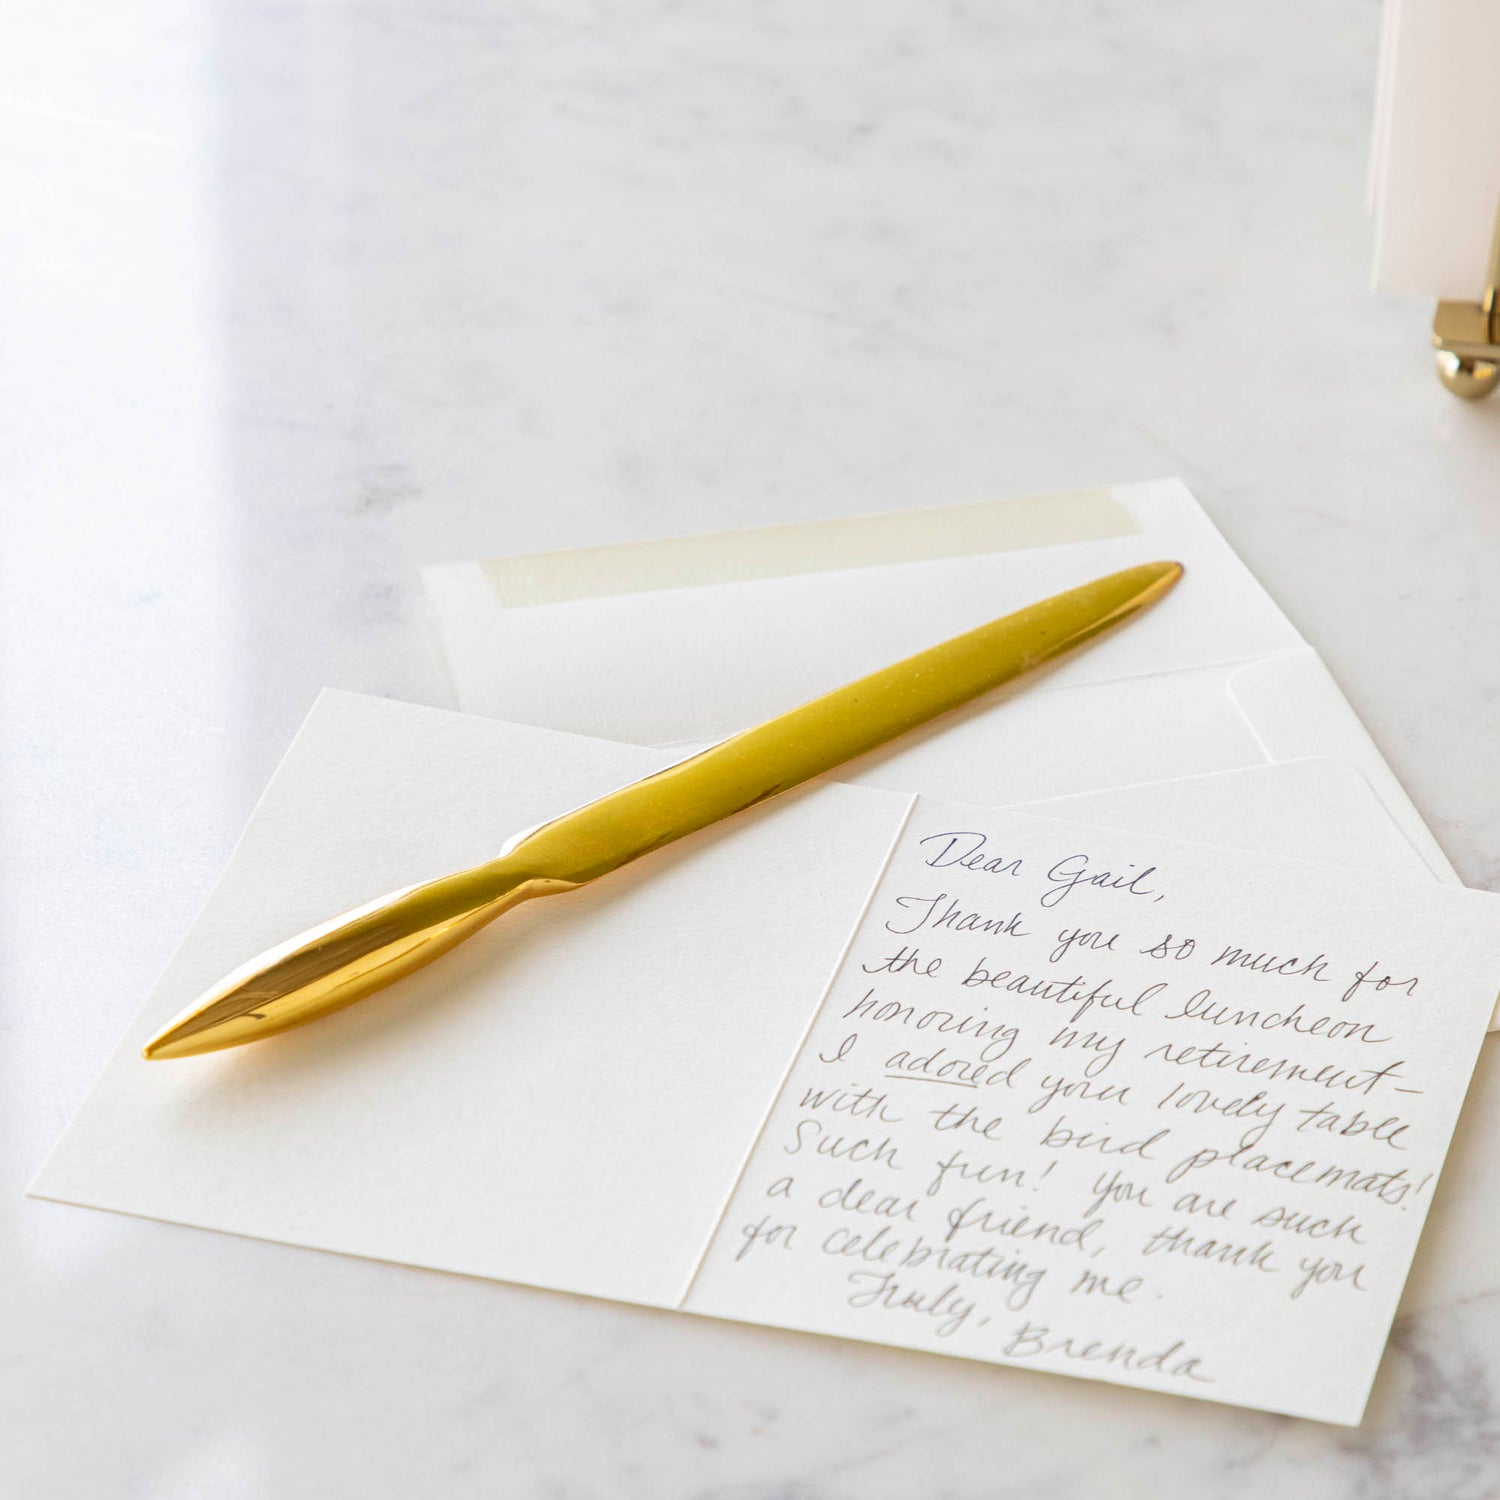 Dear Gail,
Thank you so much for
the beautiful luncheon
honoring my retirement–
I adored your lovely table
with the bird placemats!
Such fun! You are such
a dear friend, thank you
for celebrating me.
Truly, Brenda